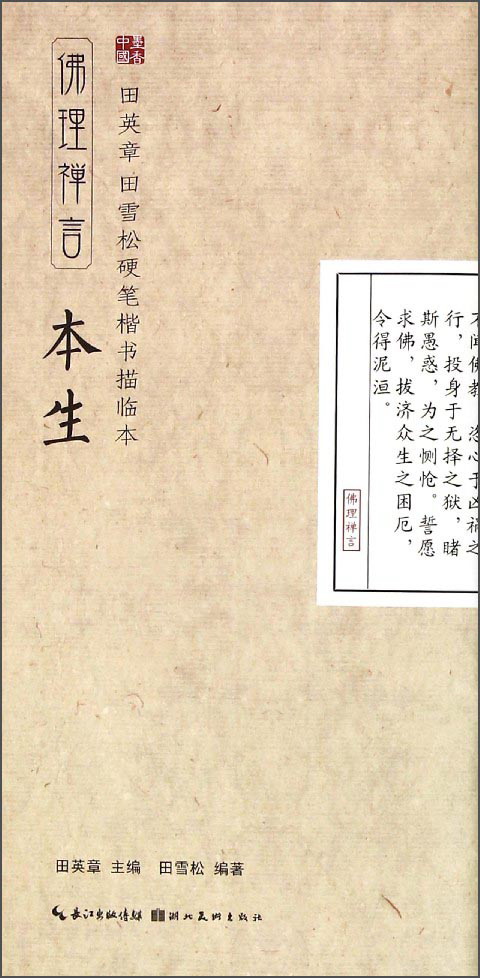 墨香中國
佛理禅言
本生
田英章田雪松硬笔楷书描临本
不闻佛教，恣心于凶祸之
行，投身于无择之狱，睹
斯愚惑，为之恻怆。誓愿
求佛，拔济众生之困厄，
令得泥洹。
佛理禅言
田英章 主编 田雪松 编著
长江出版传媒 湖北美术出版社